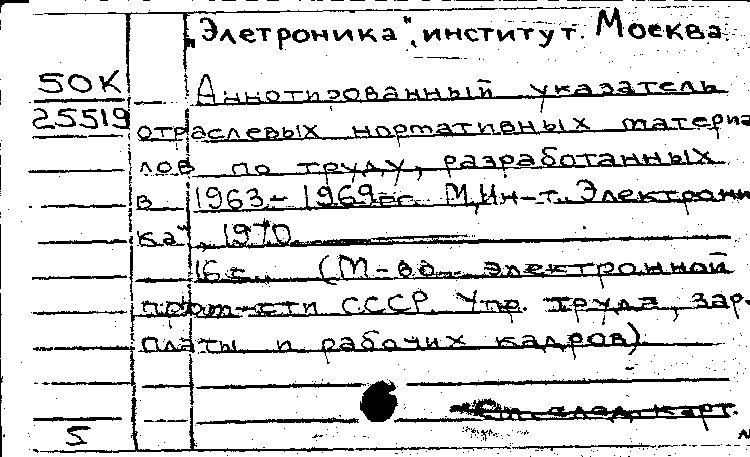 „Элетроника", институт. Москва.
50К
Аннотированный указатель
25519
отраслевых нормативных материа
лов по труду, разработанных
в 1963-1969гг. М, Ин-т „Электрони
ка", 1970.
16 с. (М-во электронной
пром-сти СССР. Упр. труда, зар.
платы и рабочих кадров).
См. след. карт.
5